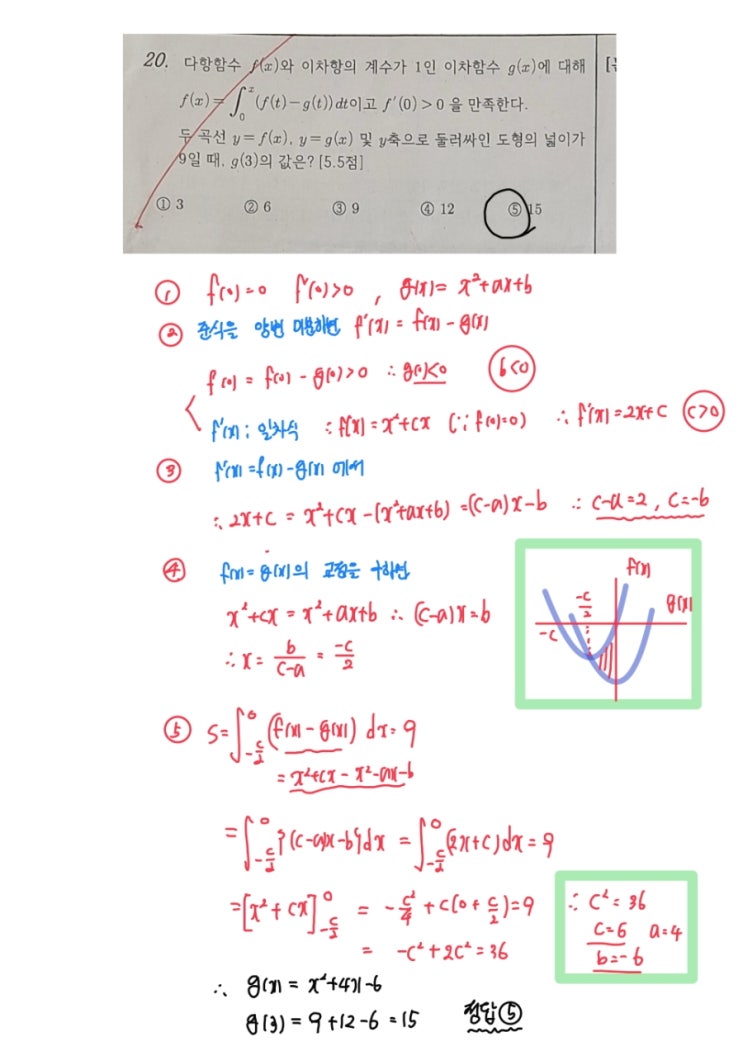 20. 다항함수 f(x)와 이차항의 계수가 1인 이차함수 g(x)에 대해
f(x)=∫₀ˣ(f(t)-g(t))dt이고 f'(0)>0 을 만족한다.
두 곡선 y=f(x), y=g(x) 및 y축으로 둘러싸인 도형의 넓이가
9일 때, g(3)의 값은? [5.5점]
① 3 ② 6 ③ 9 ④ 12 ⑤ 15
① f(0)=0 f'(0)>0 , g(x)= x²+ax+b
② 준식을 양변 미분하면 f'(x) = f(x) - g(x)
f'(0) = f(0) - g(0)>0 ∴ g(0)<0 b<0
f'(x) ; 일차식 ∴ f(x) = x²+cx (∵ f(0)=0) ∴ f'(x)=2x+c c>0
③ f'(x)=f(x)-g(x) 에서
∴ 2x+c = x²+cx-(x²+ax+b) =(c-a)x-b ∴ c-a=2, c=-b
④ f(x)=g(x)의 교점을 구하면
x²+cx = x²+ax+b ∴ (c-a)x=b
∴ x= b/(c-a) = -c/2
f(x)
-c/2 g(x)
-c
⑤ S=∫_{-c/2}^{0} (f(x)-g(x)) dx=9
= x²+cx-x²-ax-b
=∫_{-c/2}^{0} {(c-a)x-b}dx = ∫_{-c/2}^{0} (2x+c)dx=9
=[x²+cx]_{-c/2}^{0} = -c²/4 + c(0+c/2)=9
= -c²+2c²=36
∴ c²=36
c=6 a=4
b=-6
∴ g(x) = x²+4x-6
g(3) = 9+12-6=15 정답⑤